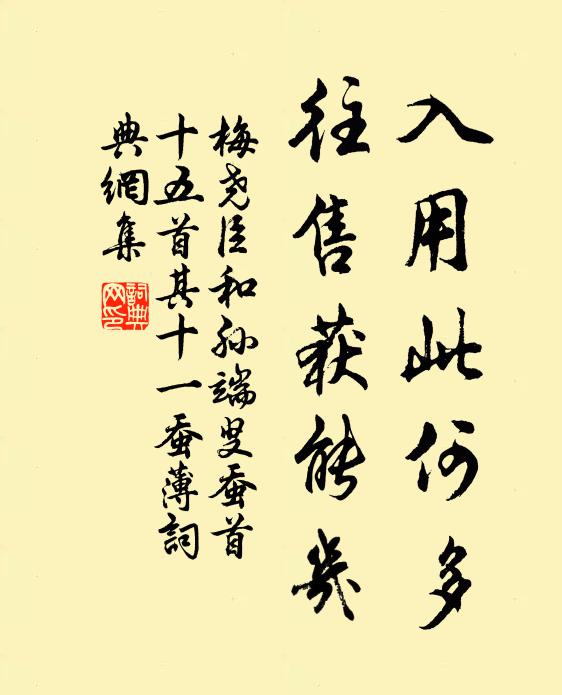 入用此何多
往售获能幾
梅尧臣和孙端叟蚕首
十五首其十一蚕薄詞
典網集
詞典
网印